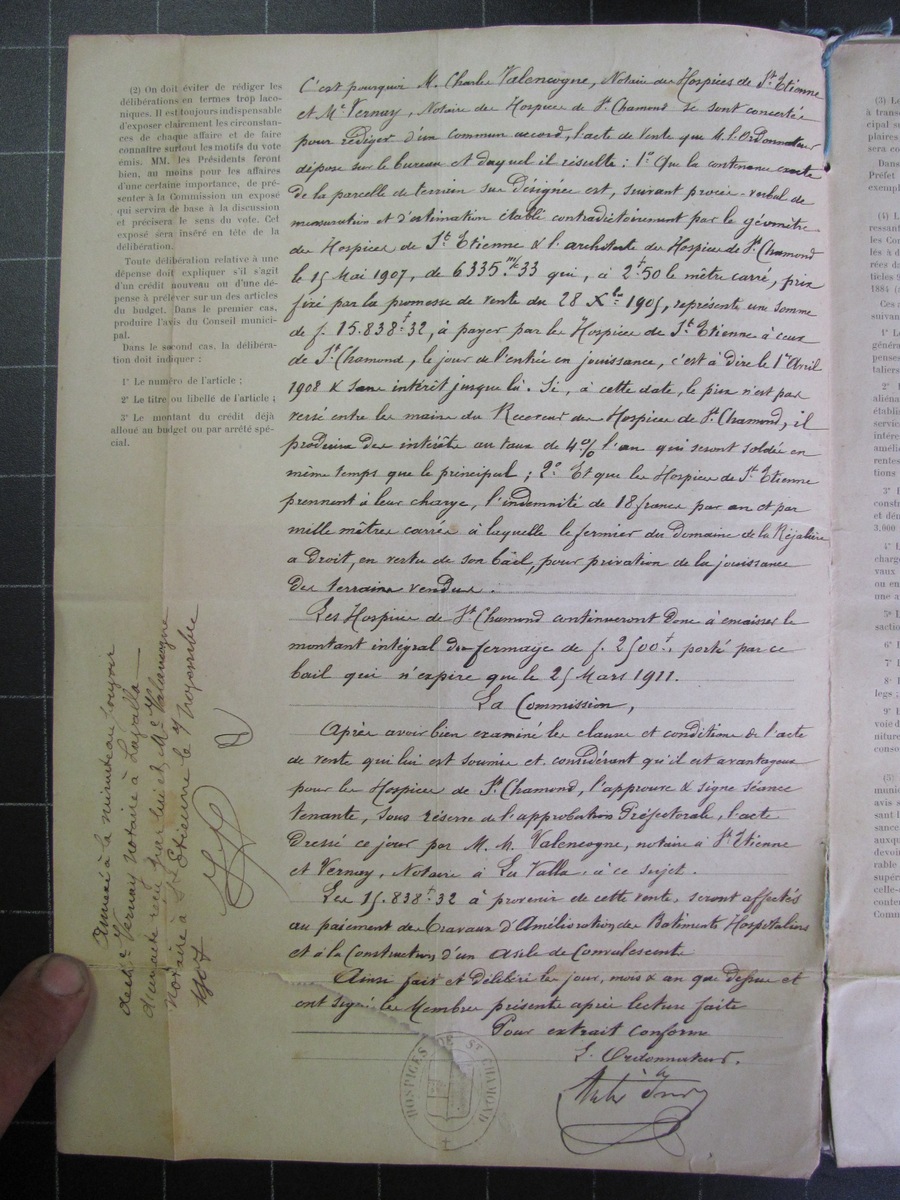 (2) On doit éviter de rédiger les
délibérations en termes trop laco-
niques. Il est toujours indispensable
d'exposer clairement les circonstan-
ces de chaque affaire et de faire
connaître surtout les motifs du vote
émis. MM. les Présidents feront
bien, au moins pour les affaires
d'une certaine importance, de pré-
senter à la Commission un exposé
qui servira de base à la discussion
et précisera le sens du vote. Cet
exposé sera inséré en tête de la
délibération.
Toute délibération relative à une
dépense doit expliquer s'il s'agit
d'un crédit nouveau ou d'une dé-
pense à prélever sur un des articles
du budget. Dans le premier cas,
produire l'avis du Conseil munici-
pal.
Dans le second cas, la délibéra-
tion doit indiquer :
1° Le numéro de l'article ;
2° Le titre ou libellé de l'article ;
3° Le montant du crédit déjà
alloué au budget ou par arrêté spé-
cial.
C'est pourquoi M. Charles Valencogne, Notaire des Hospices de St Etienne
et Me Vernay, Notaire des Hospices de St Chamond se sont concertés
pour rédiger d'un commun accord, l'acte de vente que M. l'Ordonnateur
dépose sur le bureau et duquel il résulte : 1° Que la contenance exacte
de la parcelle de terrain sus désignée est, suivant procès-verbal de
mensuration et d'estimation établi contradictoirement par le géomètre
des Hospices de St Etienne & l'architecte des Hospices de St Chamond
le 15 Mai 1907, de 6335 m/c 33 qui, à 2f.50 le mètre carré, prix
fixé par la promesse de vente du 28 Xbre 1905, représente une somme
de f. 15.838f.32, à payer par les Hospices de St Etienne à ceux
de St Chamond, le jour de l'entrée en jouissance, c'est à dire le 1er Avril
1908 & sans intérêt jusque là. Si, à cette date, le prix n'est pas
versé entre les mains du Receveur des Hospices de St Chamond, il
produira des intérêts au taux de 4% l'an qui seront soldés en
même temps que le principal ; 2° Et que les Hospices de St Etienne
prennent à leur charge, l'indemnité de 18 francs par an et par
mille mètres carrés à laquelle le fermier du Domaine de la Réjalière
a droit, en vertu de son bail, pour privation de la jouissance
des terrains vendus.
Les Hospices de St Chamond continueront donc à encaisser le
montant intégral du fermage de f. 2500f., porté par ce
bail qui n'expire que le 25 Mars 1911.
La Commission,
Après avoir bien examiné les clauses et conditions de l'acte
de vente qui lui est soumis et considérant qu'il est avantageux
pour les Hospices de St Chamond, l'approuve & signe séance
tenante, sous réserve de l'approbation Préfectorale, l'acte
dressé ce jour par M. M. Valencogne, notaire à St Etienne
et Vernay, Notaire à La Valla, à ce sujet.
Les 15.838f.32 à provenir de cette vente, seront affectés
au paiement des travaux d'Amélioration des Bâtiments Hospitaliers
et à la Construction d'un asile de Convalescents
Ainsi fait et délibéré les jour, mois & an que dessus et
ont signé les Membres présents après lecture faite
Pour extrait conforme
L'Ordonnateur,
HOSPICES DE ST CHAMOND
Annexé à la minute
Me Vernay notaire à Lavalla
reçu par lui et Me Valencogne
notaire à St Etienne le 7 novembre
1907